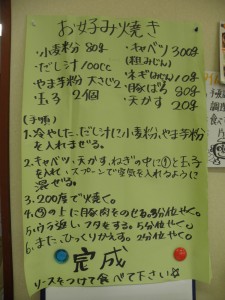 お好み焼き
・小麦粉 80g
・だし汁 100cc
・やま芋粉 大さじ2
・玉子 2個
・キャベツ 300g
(粗みじん)
・ネギみじん 10g
・豚ばら 80g
・天かす 20g
(手順)
1、冷やした、だし汁に小麦粉、やま芋粉
を入れまぜる。
2、キャベツ・天かす、ねぎの中に①と玉子
を入れ、スプーンで空気を入れように
混ぜる。
3、200度で焼く。
4、③の上に豚肉をのせる。3分位やく。
5、ウラ返し、フタをする。5分位やく。
6、また、ひっくりかえす。2分位やく。
完成
ソースをつけて食べて下さい